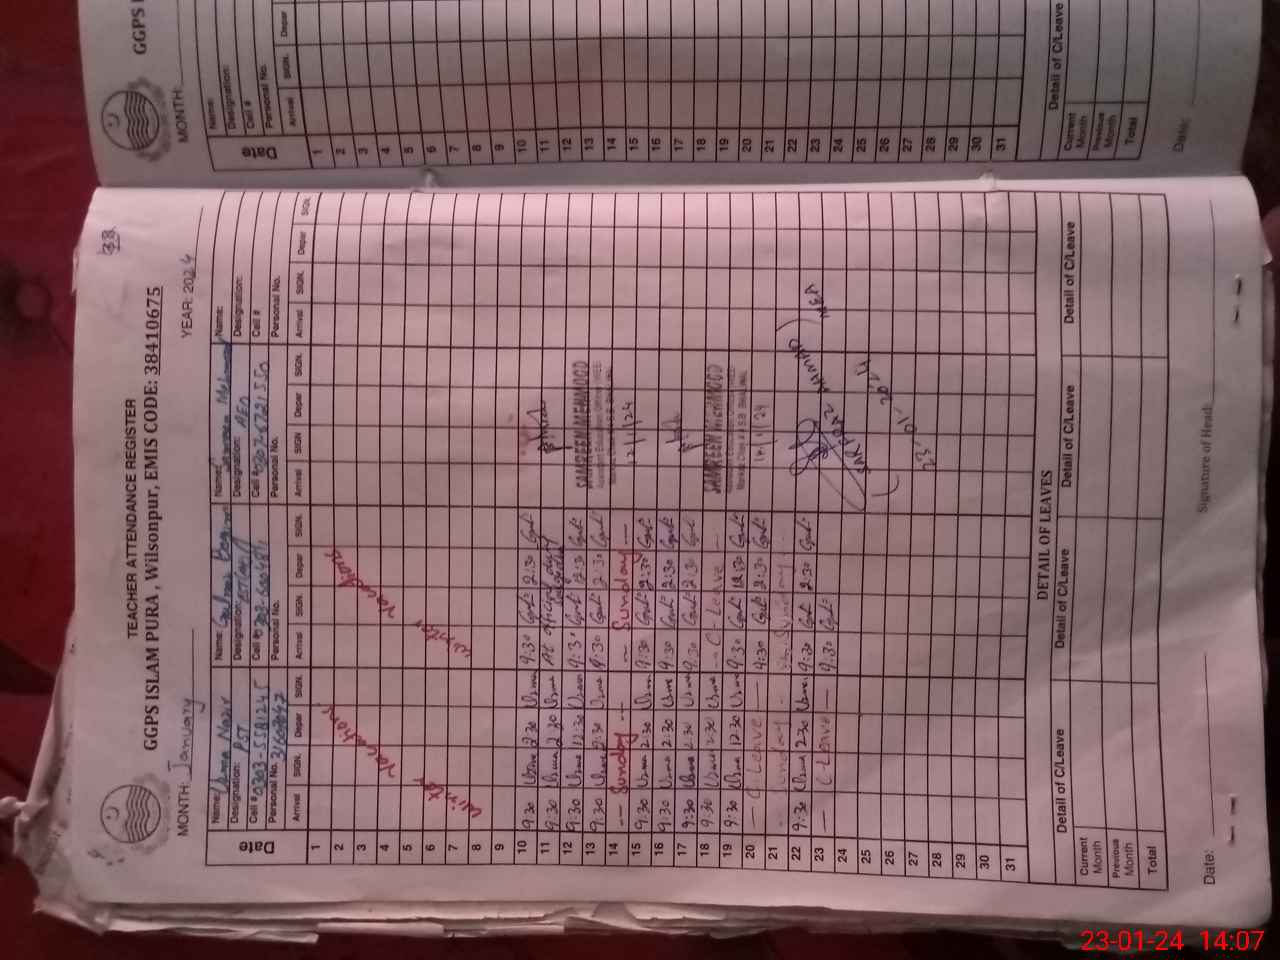 TEACHER ATTENDANCE REGISTER
GGPS ISLAM PURA , Wilsonpur, EMIS CODE: 38410675
MONTH: January YEAR: 2024
Name: Uzma Nazir Name: Name: Samreen Mehmood Name:
Designation: PST Designation: Designation: AEO Designation:
Cell # 0303-5581245 Cell # Cell # Cell #
Personal No. Personal No. Personal No. Personal No.
Date Arrival SIGN. Depar SIGN. Arrival SIGN. Depar SIGN. Arrival SIGN. Depar SIGN. Arrival SIGN. Depar SIGN.
1
2
3
4
5
6
7
8
9
winter vacations winter vacations
10 9:30 Uzma 2:30 Uzma 9:30 Gul 2:30 Gul
11 9:30 Uzma 2:30 Uzma At official duty
12 9:30 Uzma 12:30 Uzma 9:30 Gul 12:30 Gul
SAMREEN MEHMOOD
13 9:30 Uzma 2:30 Uzma 9:30 Gul 2:30 Gul
14 Sunday Sunday
12/1/24
15 9:30 Uzma 2:30 Uzma 9:30 Gul 2:30 Gul
16 9:30 Uzma 2:30 Uzma 9:30 Gul 2:30 Gul
17 9:30 Uzma 2:30 Uzma 9:30 Gul 2:30 Gul
18 9:30 Uzma 2:30 Uzma C-Leave
SAMREEN MEHMOOD
19 9:30 Uzma 12:30 Uzma 9:30 Gul 12:30 Gul
20 C-Leave 9:30 Gul 2:30 Gul
21 Sunday Sunday
22 9:30 Uzma 2:30 Uzma 9:30 Gul 2:30 Gul
23 C-Leave 9:30 Gul
SARFRAZ AHMAD
MEA
23-01-2024
24
25
26
27
28
29
30
31
DETAIL OF LEAVES
Detail of C/Leave Detail of C/Leave Detail of C/Leave Detail of C/Leave
Current Month
Previous Month
Total
Date: Signature of Head:
GGPS I
MONTH:
Name:
Designation:
Cell #
Personal No.
Date Arrival SIGN. Depar
1
2
3
4
5
6
7
8
9
10
11
12
13
14
15
16
17
18
19
20
21
22
23
24
25
26
27
28
29
30
31
Detail of C/Leave
Current Month
Previous Month
Total
Date:
23-01-24 14:07